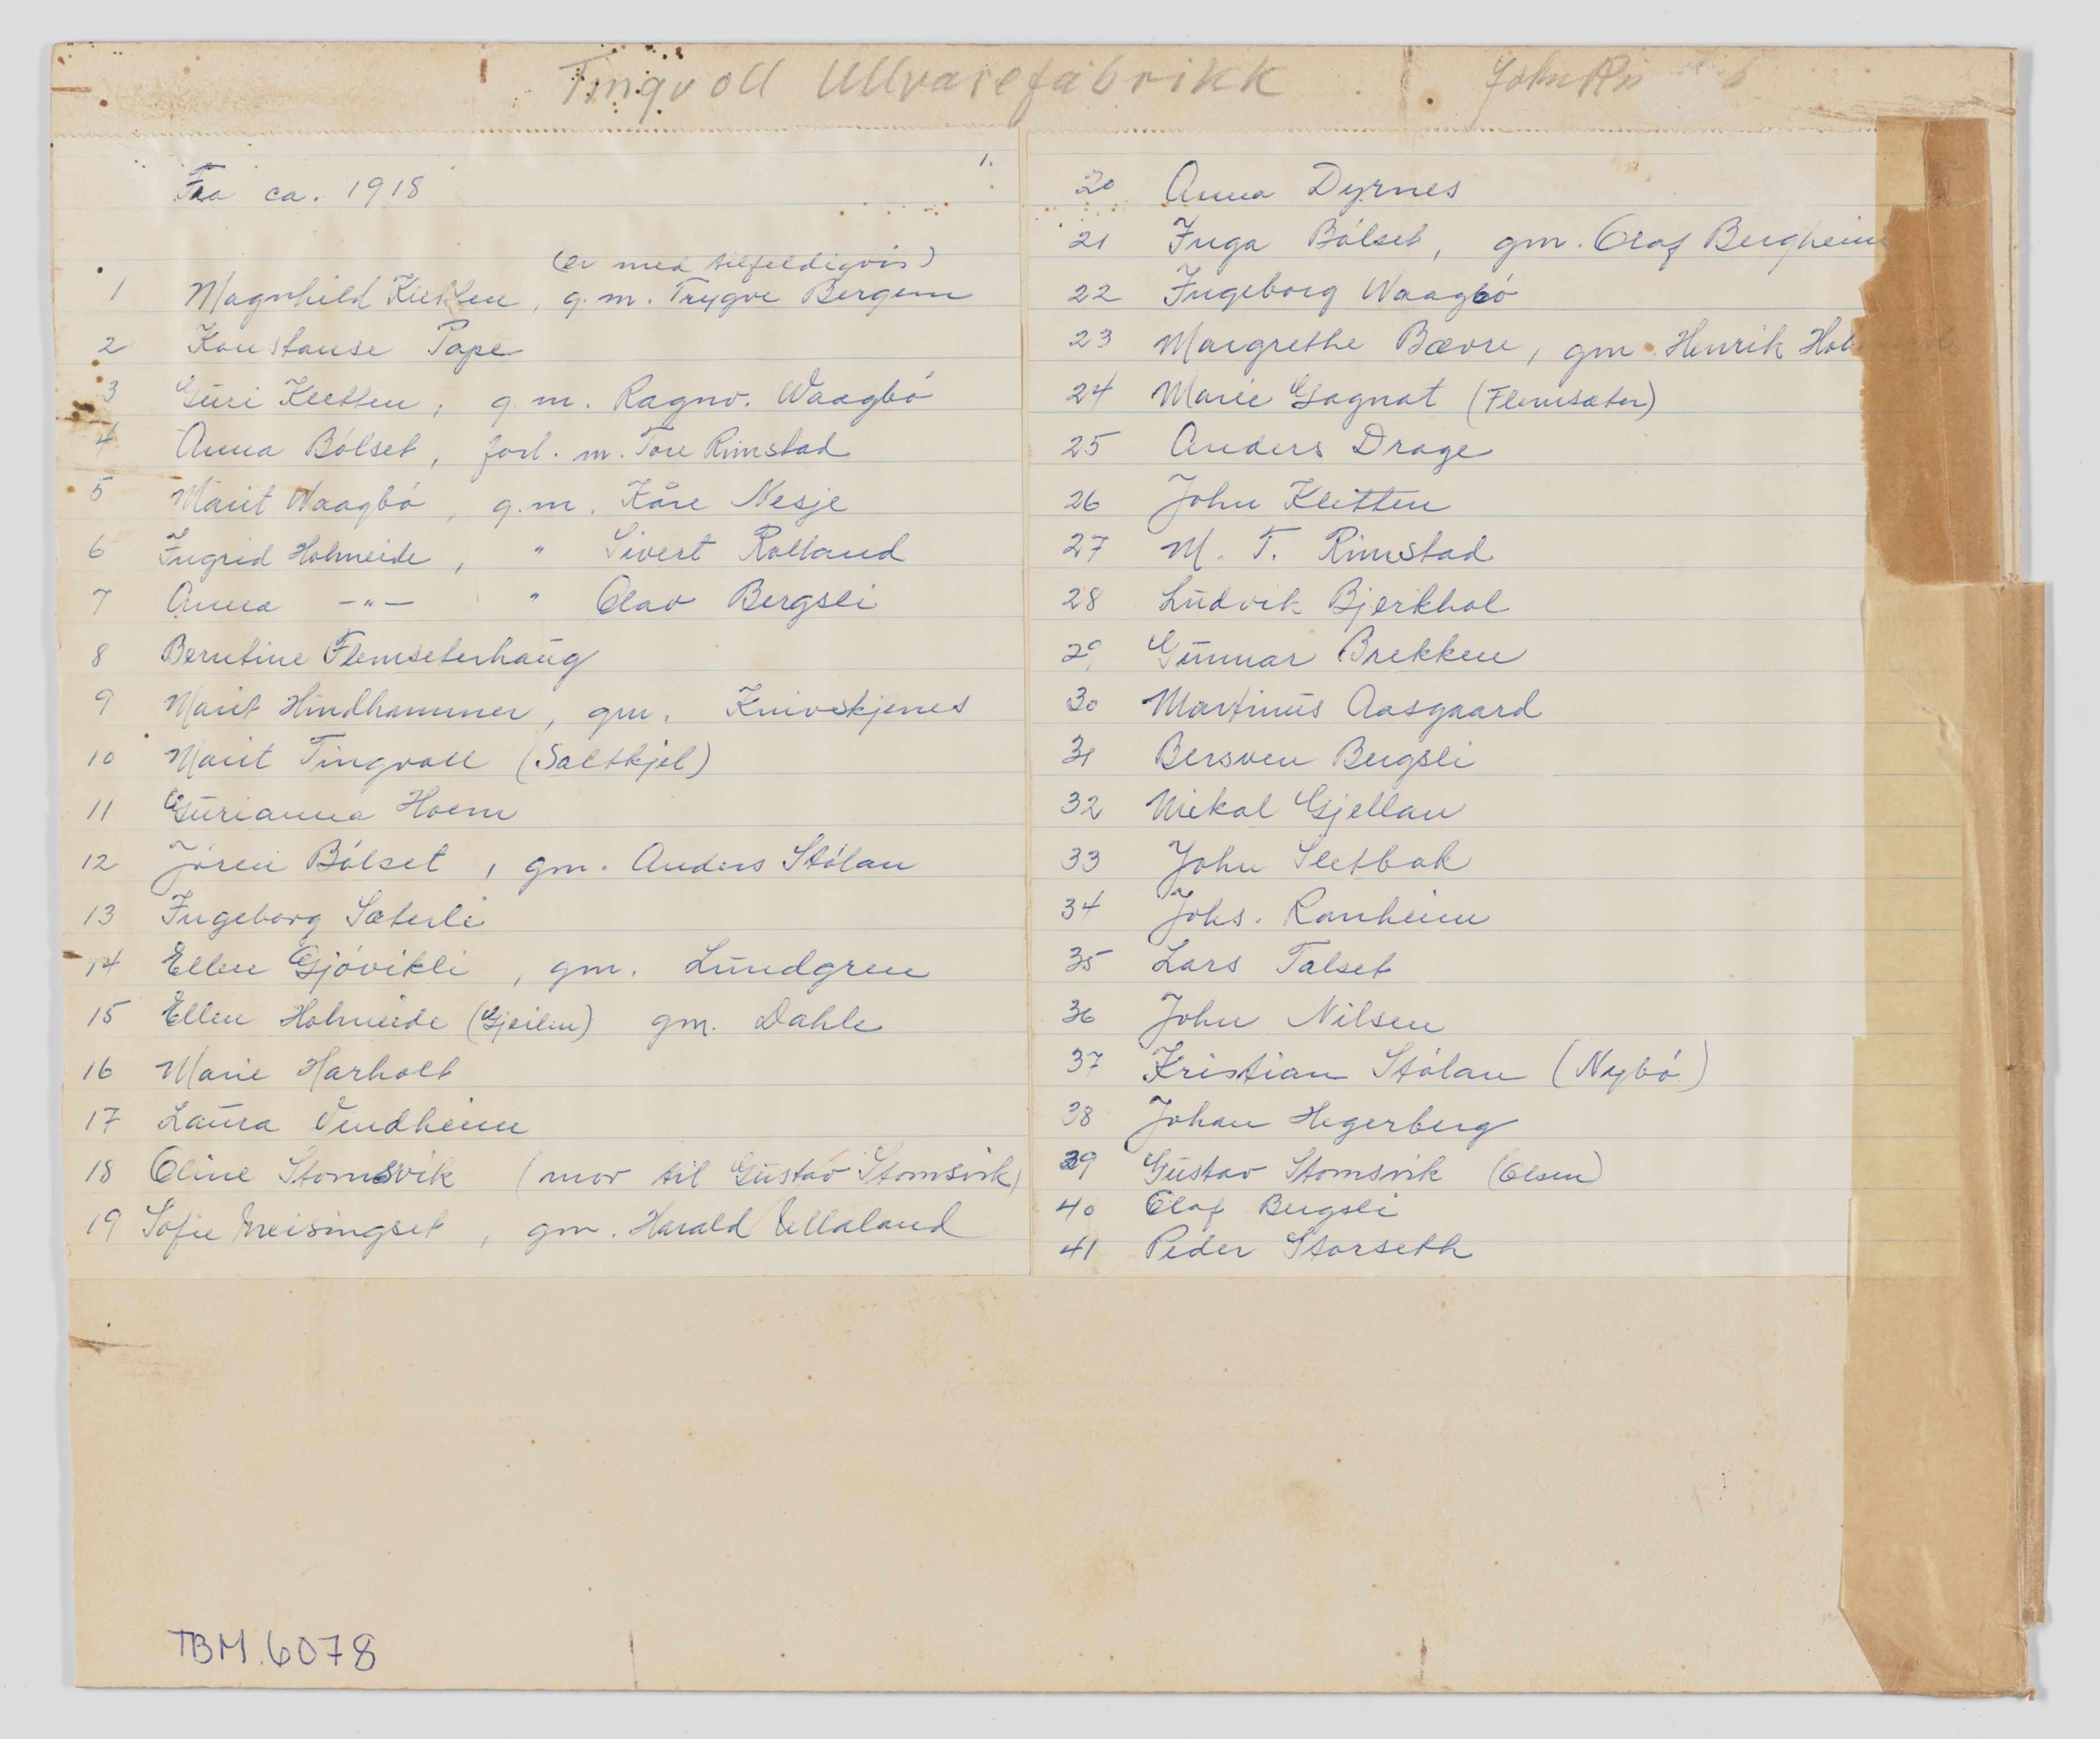 Tingvoll Ullvarefabrikk
John
1.
Fra ca. 1918
(er med tilfeldigvis)
1 Magnhild Kletten, g.m. Trygve Bergem
2 Konstanse Pape
3 Guri Kletten, g.m. Ragnv. Waagbó
4 Anna Bólset, forl. m. Tore Rimstad
5 Marit Waagbó, g.m. Kåre Nesje
6 Ingrid Holmeide, " Sivert Rolland
7 Anna -"- " Olav Bergsli
8 Berntine Flemseterhaug
9 Marit Hindhammer, gm. Knivskjenes
10 Marit Tingvoll (Saltkjel)
11 Gurianna Hoem
12 Jóren Bólset, gm. Anders Stólan
13 Ingeborg Sæterli
14 Ellen Gjóvikli, gm. Lundgren
15 Ellen Holmeide (Gjeilen) gm. Dahle
16 Marie Harholt
17 Laura Vindheim
18 Oline Stomsvik (mor til Gustav Stomsvik)
19 Sofie Meisingset, gm. Harald Ullaland
20 Anna Dyrnes
21 Inga Bólset, gm. Olaf Bergheim
22 Ingeborg Waagbó
23 Margrethe Bævre, gm. Henrik
24 Marie Gagnat (Flemsæter)
25 Anders Drage
26 John Kletten
27 M. T. Rimstad
28 Ludvik Bjerkhol
29 Gunnar Brekken
30 Martinus Aasgaard
31 Bersven Bergsli
32 Mikal Gjellan
33 John Sletbak
34 Johs. Ranheim
35 Lars Talset
36 John Nilsen
37 Kristian Stólan (Nybó)
38 Johan Hegerberg
39 Gustav Stomsvik (Olsen)
40 Olaf Bergsli
41 Peder Storseth
TBM.6078